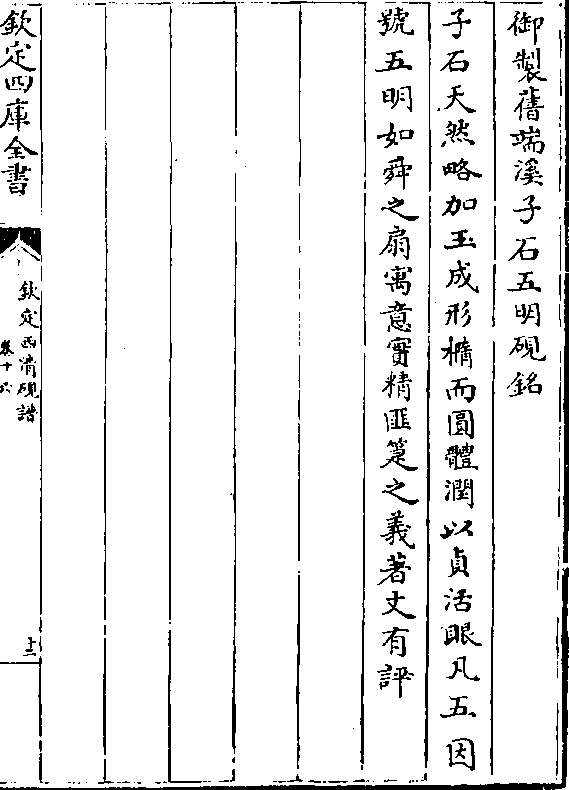 御製舊端溪子石五明硯銘
子石天然略加玉成形橢而圓體潤以貞活眼凡五因
號五明如舜之扇寓意實精匪箑之義著丈有評
欽定四庫全書
欽定西清硯譜
卷十六
十三